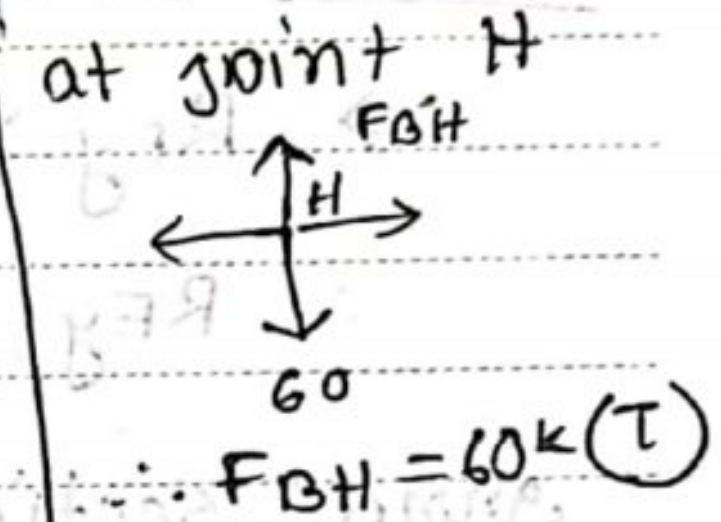 at joint H
FBH
H
60
∴ FBH = 60k (T)